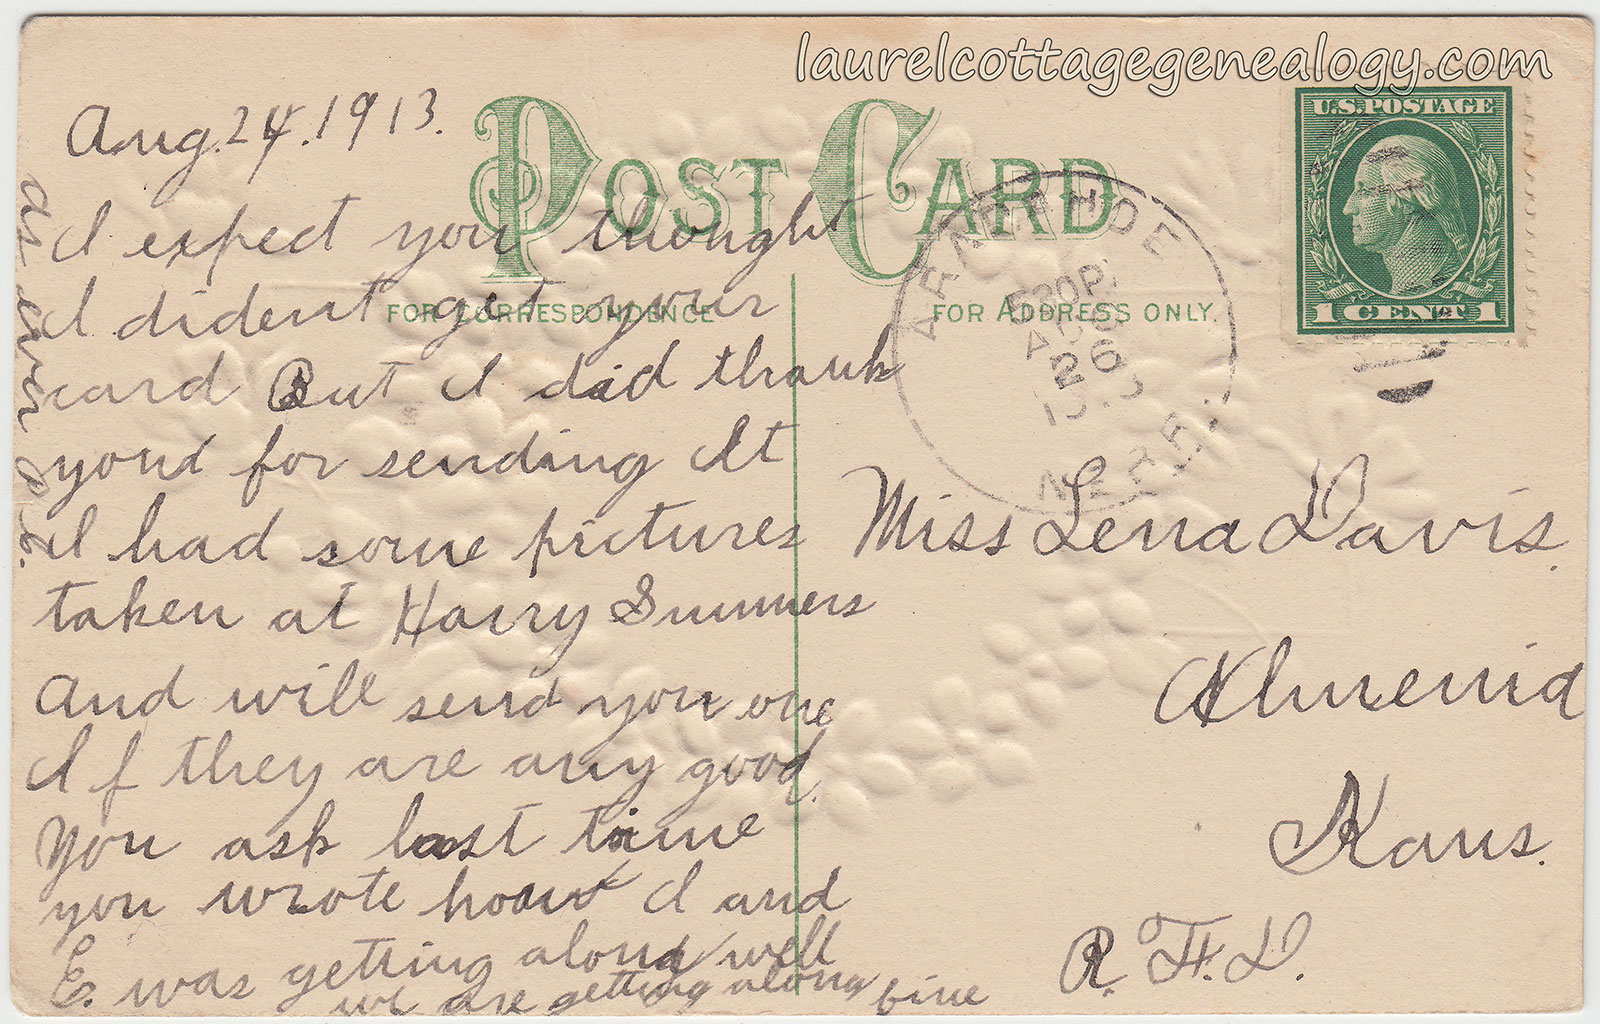 laurelcottagegenealogy.com
Aug. 24. 1913.
POST CARD
U.S. POSTAGE
1 CENT 1
FOR CORRESPONDENCE
FOR ADDRESS ONLY.
ARAPAHOE
530P
26
NEBR.
I expect you thought
I dident get your
card But I did thank
you for sending It
I had some pictures
taken at Harry Summers
And will send you one
If they are any good.
You ask last time
you wrote how I and
E. was getting along well
we are getting along fine
as ever
Miss Lena Davis.
Almenia
Kans.
R. F. D.